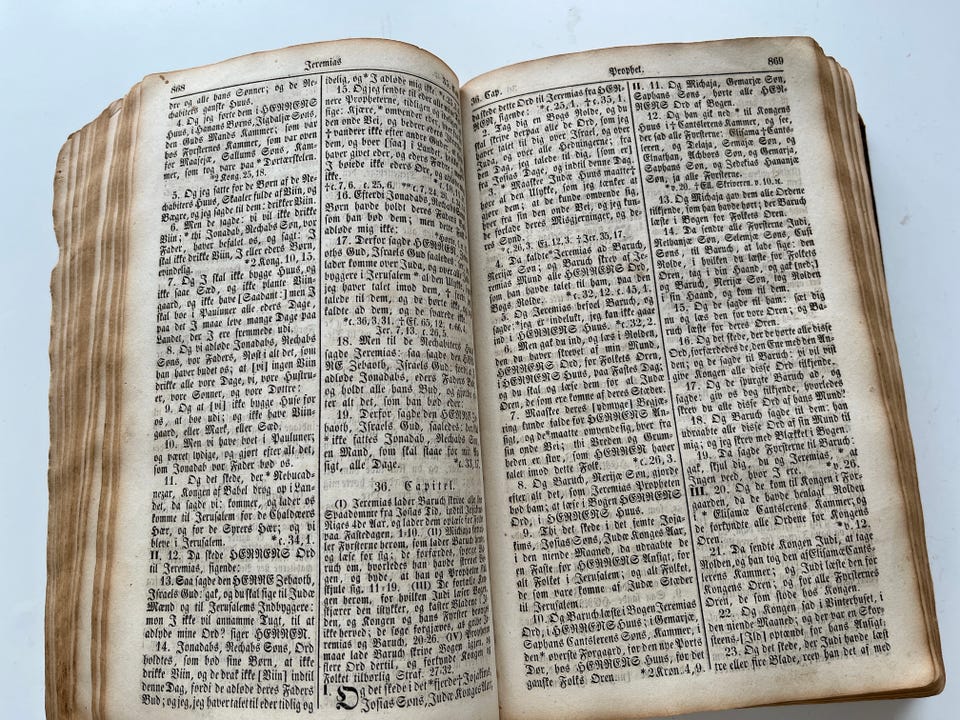 868
Jeremias
dre og alle hans Sønner; og de Re-
chabiters ganske Huus.
4. Og jeg førte dem i HERRENS
Huus, i Hanans Børns, Jigdaljæ Søns,
den Guds Mands Kammer; som var
hos Fyrsternes Kammer, som var oven
for Maasejæ, Sallums Søns, Kam-
mer, som tog vare paa *Dørtærskelen.
*2 Kong. 25, 18.
5. Og jeg satte for de Børn af de Re-
chabiters Huus, Skaaler fulde af Viin, og
Bægre, og jeg sagde til dem: drikker Viin!
6. Men de sagde: vi vil ikke drikke
Viin; *thi Jonadab, Rechabs Søn, vor
Fader, haver befalet os, og sagt: I
skal ikke drikke Viin, I eller eders Børn,
evindelig.
*2. Kong. 10, 15.
7. Og I skal ikke bygge Huus, og
ikke saae Sæd, og ikke plante Viin-
gaard, og ikke have [Saadant:] men I
skal boe i Pauluner alle eders Dage,
paa det I maae leve mange Dage paa
Landet, der I ere fremmede udi.
8. Og vi adløde Jonadabs, Rechabs
Søns, vor Faders, Røst i alt det, som
han haver budet os; at [vi] ingen Viin
drikke alle vore Dage, vi, vore Hustru-
er, vore Sønner, og vore Døttre;
9. Og at [vi] ikke bygge Huse for
os, at boe udi; og ikke have Viin-
gaard, eller Mark, eller Sæd.
10. Men vi have boet i Pauluner,
og været lydige, og gjort efter alt det,
som Jonadab vor Fader bød os.
11. Og det skede, der *Nebucad-
nezar, Kongen af Babel drog op i Lan-
det, da sagde vi: kommer, og lader os
komme til Jerusalem for de Chaldæers
Hær, og for de Syrers Hær; og vi
bleve i Jerusalem.
*c. 34, 1.
II. 12. Da skede HERRENS Ord
til Jeremias, sigende:
13. Saa sagde den HERRE Zebaoth,
Israels Gud: gak, og du skal sige til Judæ
Mænd og til Jerusalems Indbyggere:
mon I ikke vil annamme Tugt, til at
adlyde mine Ord? siger HERREN.
14. Jonadabs, Rechabs Søns, Ord
holdtes, som bød sine Børn, at ikke
drikke Viin, og de drak ikke [Viin] indtil
denne Dag, fordi de adløde deres Faders
Bud; og jeg, jeg haver talet til eder tidlig og
idelig, og *I adløde mig ikke.
15. Og jeg sendte til eder alle
nere Propheterne, tidlig og
sigende: Kjære, *omvender eder
den onde Vei, og bedrer eders
† vandrer ikke efter andre Guder
dem, og boer [saa] i Landet,
haver givet eder, og eders Fædre;
I bøiede ikke eders Øre, og
ikke.
†c. 7, 6. c. 25, 6. **c. 7, 24.
16. Efterdi Jonadabs, Rechabs
Børn harde holdt deres Faders
som han bød dem; men dette
adløde mig ikke:
17. Derfor sagde HERREN,
oths Gud, Israels Gud saaledes:
lader komme over Juda, og over alle
byggere i Jerusalem *al den Ulykke
jeg haver talet imod dem, †fordi
talede til dem, og de hørte
kaldede ad dem, og de svarede
*c. 36, 3, 31. †Es. 65, 12. c. 66, 4.
Jer. 7, 13. c. 26, 5.
18. Men til de Rechabiters Huus
sagde Jeremias: saa sagde den HER-
RE Zebaoth, Israels Gud: fordi
adløde Jonadabs, eders Faders Bud
og holdt alle hans Bud, og gjorde
ter alt det, som han bød eder.
19. Derfor sagde den HERRE
baoth, Israels Gud, saaledes: der
*ikke fattes Jonadab, Rechabs Søn
en Mand, som skal staae for mit
sigt, alle Dage.
*c. 33, 17.
36. Capitel.
(I) Jeremias lader Baruch skrive alle sine
Spaadomme fra Josias Tid, indtil Jojakims
Riges 4de Aar, og lader dem oplæse for Folket
paa Fastedagen. 1-10. (II) Michaja siger
det Fyrsterne herom, som lader Baruch hente
og læse for sig; de forfærdes, spørge Ba-
ruch om, hvorledes han havde skrevet Bo-
gen, og byde, at han og Propheten skal
skjule sig. 11-19. (III) De fortælle Kon-
gen herom, for hvilken Judi læser Bogen,
skjærer den istykker, og kaster Bladene i Il-
den, og Kongen og hans Fyrster bevæges
ikke herved; de søge forgjæves, at gribe Je-
remias og Baruch. 20-26. (IV) Propheten
maae lade Baruch skrive Bogen igjen, og
flere Ord dertil, og forkynde Kongen og
Folket tilbørlig Straf. 27-32.
I. Og det skede i det *fjerde † Jojakims,
Josias Søns, Judæ Konges Aar,
Prophet.
869
36. Cap.
da skede dette Ord til Jeremias fra HER-
REN, sigende: *c. 25, 1. †c. 35, 1.
2. Tag dig en Bogs Rolde, og du
skal skrive derpaa alle de Ord, som jeg
haver talet til dig over Israel, og over
Juda, og over alle Hedningerne; fra
den Dag, jeg talede til dig, [som er]
fra Josias' Dage, og indtil denne Dag.
3. *Maaskee Judæ Huus maatte †
høre al den Ulykke, som jeg tænker at
gjøre dem; at de kunde omvende sig,
hver fra sin den onde Vei, og jeg kun-
de forlade deres Misgjerninger, og de-
res Synd.
*c. 26, 3. Ez. 12, 3. †Jer. 35, 17.
4. Da kaldte *Jeremias ad Baruch,
Nerijæ Søn; og Baruch skrev af Je-
remias Mund alle HERRENS Ord,
som han havde talet til ham, paa den
Bogs Rolde. *c. 32, 12. c. 45, 1.
5. Og Jeremias befoel Baruch, og
sagde: *jeg er indelukt, jeg kan ikke gaae
ind i HERRENS Huus. *c. 32, 2.
6. Men gak du ind, og læs i Rolden,
som du haver skrevet af min Mund,
HERRENS Ord, for Folkets Øren,
i HERRENS Huus, paa Fastens Dag;
og du skal og læse dem for al Judæ
Øren, de som ere komne af deres Stæder.
7. Maaskee deres [ydmyge] Begjæ-
ring kunde falde for HERRENS An-
sigt, og de *maatte omvende sig, hver fra
sin onde Vei; thi Vreden og Grum-
heden er stor, som HERREN haver
talet imod dette Folk. *c. 26, 3.
8. Og Baruch, Nerijæ Søn, gjorde
efter alt det, som Jeremias Propheten
bød ham; at læse i Bogen HERRENS
Ord, i HERRENS Huus.
9. Thi det skede i det femte Joja-
kims, Josias Søns, Judæ Konges Aar,
i den niende Maaned, da udraabte de
en Faste for HERRENS Ansigt, for
alt Folket i Jerusalem; og alt Folket,
de som vare komne af Judæ Stæder
til Jerusalem.
10. Og Baruch læste i Bogen Jeremias
Ord, i HERRENS Huus; i Gemarjæ,
Saphans Cantslerens Søns, Kammer, i
den *øverste Forgaard, for den nye Ports
Dør, hos HERRENS Huus, for det
ganske Folks Øren. *2 Krøn. 4, 9.
II. 11. Og Michaja, Gemarjæ Søn,
Saphans Søns, hørte alle HER-
RENS Ord af Bogen.
12. Og han gik ned *til Kongens
Huus i †Cantslerens Kammer, og see,
der sad alle Fyrsterne: Elisama †Cants-
leren, og Delaja, Semajæ Søn, og
Elnathan, Achbors Søn, og Gemarja,
Saphans Søn, og Zedekias Hananjæ
Søn, ja alle Fyrsterne.
*v. 20. †Ell. Skriveren. v. 10. 2c.
13. Og Michaja gav dem alle Ordene
tilkjende, som han havde hørt; der Baruch
læste i Bogen for Folkets Øren.
14. Da sendte alle Fyrsterne Judi,
Nethanjæ Søn, Selemjæ Søns, Cusi
Søns, til Baruch, at lade sige: den
Rolde, i hvilken du læste for Folkets
Øren, tag i din Haand, og gak [ned;]
og Baruch, Nerijæ Søn, tog Rolden
i sin Haand, og kom til dem.
15. Og de sagde til ham: sæt dig
nu og læs den for vore Øren; og Ba-
ruch læste for deres Øren.
16. Og det skede, der de hørte alle disse
Ord, forfærdedes de, den Ene med den An-
den; og de sagde til Baruch: vi vil vist
give Kongen alle disse Ord tilkjende.
17. Og de spurgte Baruch ad, og
sagde: giv os dog tilkjende, hvorledes
skrev du alle disse Ord af hans Mund?
18. Og Baruch sagde til dem: han
udraabte alle disse Ord af sin Mund til
mig; og jeg skrev med Blækket i Bogen.
19. Da sagde Fyrsterne til Baruch:
gak, skjul dig, du og Jeremias, *at
Ingen veed, hvor I ere. *v. 26.
III. 20. Og de kom til Kongen i For-
gaarden, da de havde henlagt Rolden
i *Elisamæ Cantslerens Kammer, og
de forkyndte alle Ordene for Kongens
Øren.
*v. 12.
21. Da sendte Kongen Judi, at tage
Rolden, og han tog den af Elisamæ Cants-
lerens Kammer; og Judi læste den for
Kongens Øren, og for alle Fyrsternes
Øren, de som stode hos Kongen.
22. Og Kongen sad i Vinterhuset, i
den niende Maaned; og der var en Skor-
steens [Ild] optændt for hans Ansigt.
23. Og det skede, der Judi havde læst
tre eller fire Blade, rev han det af med